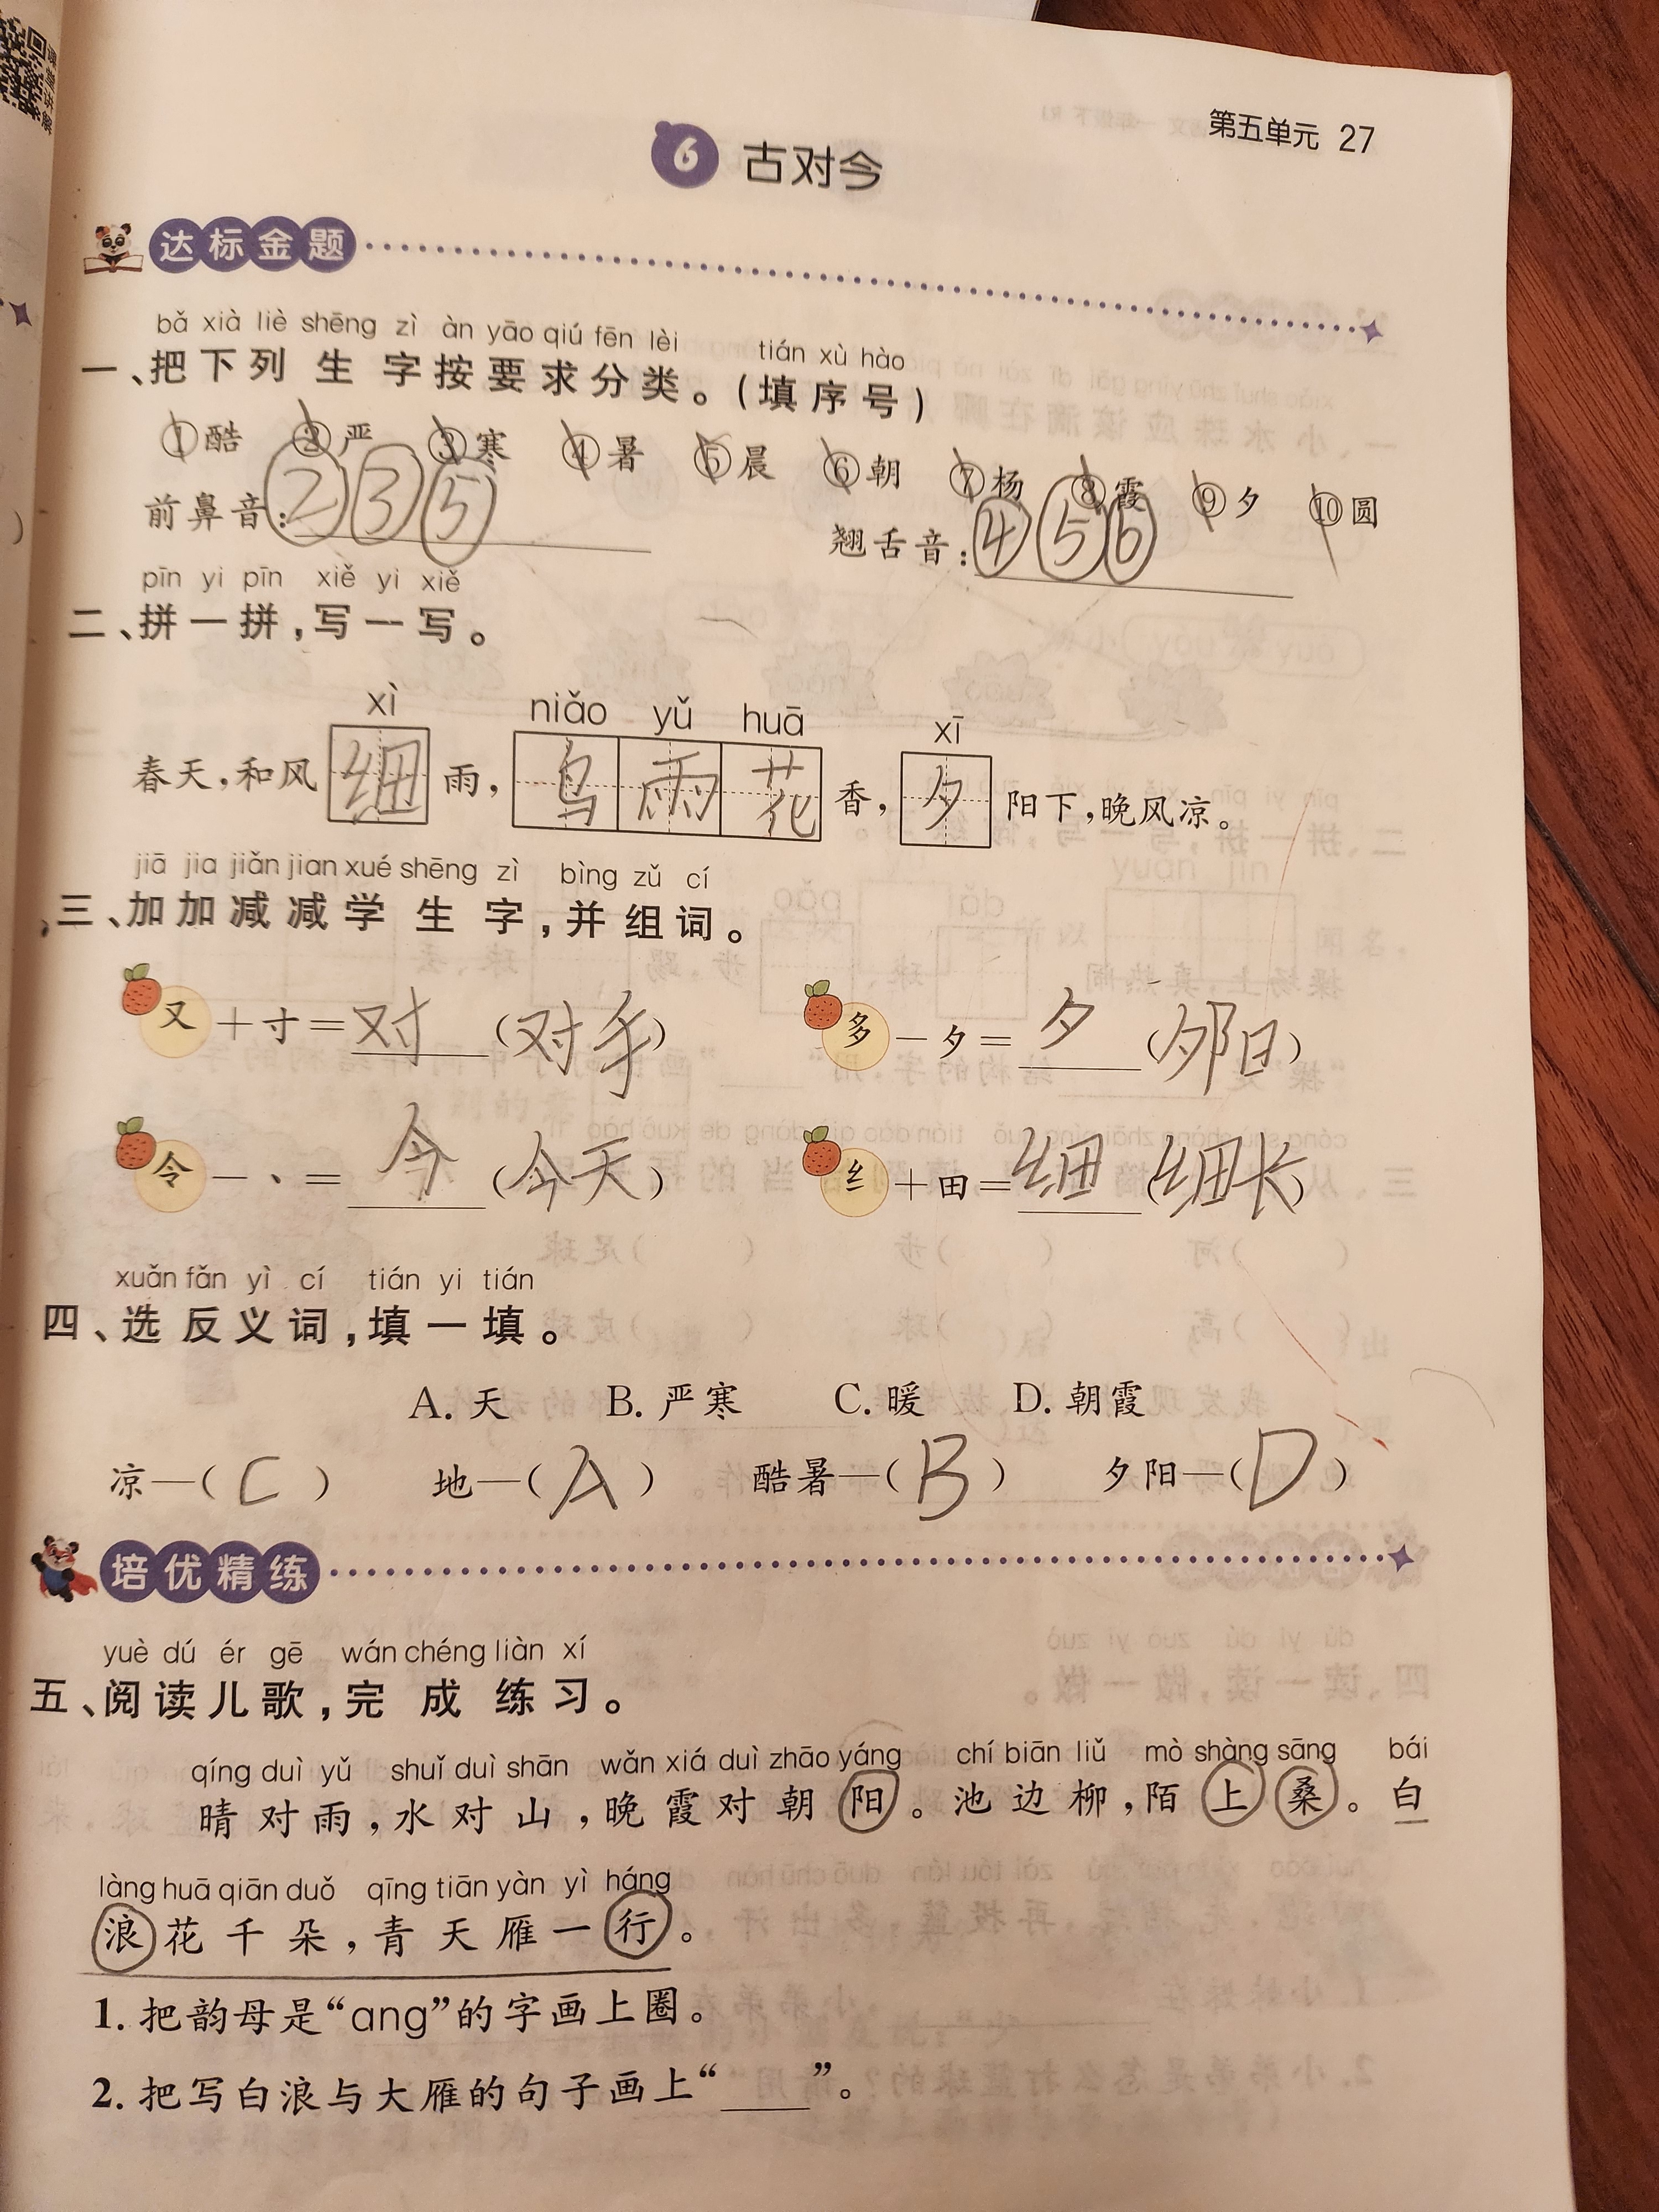 第五单元 27
6 古对今
达标金题
bǎ xià liè shēng zì àn yāo qiú fēn lèi tián xù hào
一、把下列生字按要求分类。(填序号)
①酷 ②严 ③寒 ④暑 ⑤晨 ⑥朝 ⑦杨 ⑧霞 ⑨夕 ⑩圆
前鼻音:②③⑤ 翘舌音:④⑤⑥
pīn yi pīn xiě yi xiě
二、拼一拼,写一写。
xì niǎo yǔ huā xī
春天,和风细雨,鸟雨花香,夕阳下,晚风凉。
jiā jia jiǎn jian xué shēng zì bìng zǔ cí
三、加加减减学生字,并组词。
又+寸=对(对手) 多-夕=夕(夕阳)
令-、=今(今天) 纟+田=细(细长)
xuǎn fǎn yì cí tián yi tián
四、选反义词,填一填。
A. 天 B. 严寒 C. 暖 D. 朝霞
凉—(C) 地—(A) 酷暑—(B) 夕阳—(D)
培优精练
yuè dú ér gē wán chéng liàn xí
五、阅读儿歌,完成练习。
qíng duì yǔ shuǐ duì shān wǎn xiá duì zhāo yáng chí biān liǔ mò shàng sāng bái
晴对雨,水对山,晚霞对朝阳。池边柳,陌上桑。白
làng huā qiān duǒ qīng tiān yàn yì háng
浪花千朵,青天雁一行。
1. 把韵母是“ang”的字画上圈。
2. 把写白浪与大雁的句子画上“___”。